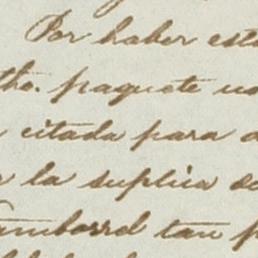 Por haber est
tho. paquete u
citada para
la suplica d
tan